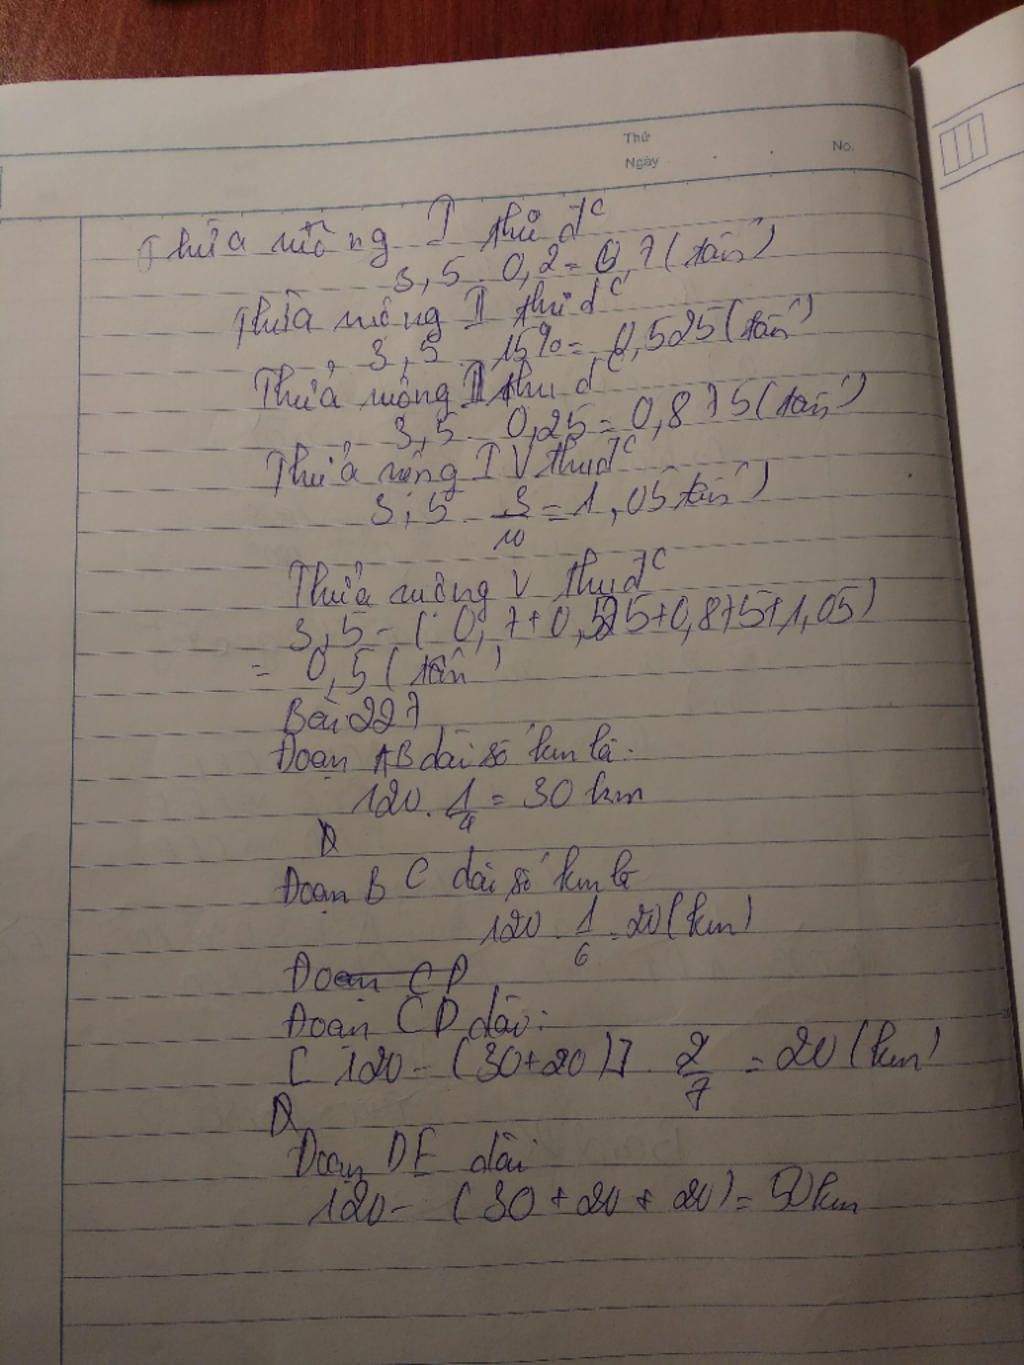 Thứ
Ngày
No.
Thửa ruộng I thu đc
3,5 . 0,2 = 0,7 (tấn)
Thửa ruộng II thu đc
3,5 . 15% = 0,525 (tấn)
Thửa ruộng III thu đc
3,5 . 0,25 = 0,875 (tấn)
Thửa ruộng IV thu đc
3,5 . 3/10 = 1,05 tấn)
Thửa ruộng V thu đc
3,5 - ( 0,7 + 0,525 + 0,875 + 1,05)
= 0,5 (tấn)
Bài 227
Đoạn AB dài số km là:
120 . 1/4 = 30 km
Đoạn BC dài số km là
120 . 1/6 = 20 (km)
Đoạn CD
Đoạn CD dài:
[ 120 - (30+20)] . 2/7 = 20 (km)
Đoạn DE dài
120 - (30 + 20 + 20) = 50 km